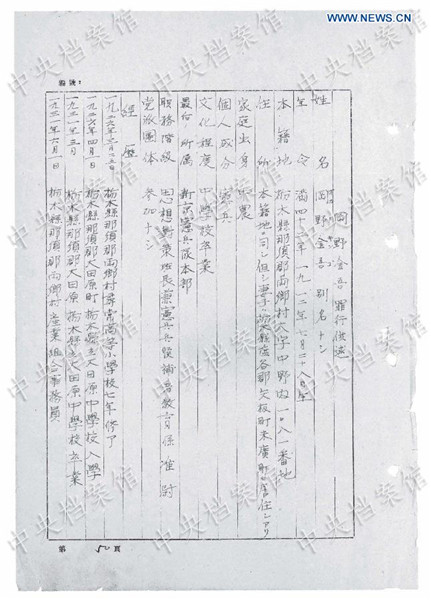 WWW.NEWS.CN
岡野金吾 罪行供述
姓名 岡野金吾 別名 ナシ
年令 満四十二年 一九一二年七月二十八日生
本籍地 栃木縣那須郡両郷村大字中野内一〇八一番地
住所 本籍地ニ同シ 但シ妻子ハ栃木縣塩谷郡矢板町末廣町ニ居住シアリ
家庭出身 農
個人成分 憲兵
文化程度 中學校卒業
最後ノ所属 新京憲兵隊本部
職務階級 思想対策班長兼憲兵兵候補者教育係 准尉
党派團体 参加ナシ
經歴
一九二六年三月二五日 栃木縣那須郡両郷村尋常高等小學校七年修了
一九二六年四月一日 栃木縣那須郡大田原町 栃木縣立大田原中學校入學
一九三一年三月 栃木縣那須郡大田原 栃木縣立大田原中學校卒業
一九三一年六月一日 栃木縣那須郡両郷村産業組合事務員
第 50 頁
中央档案馆